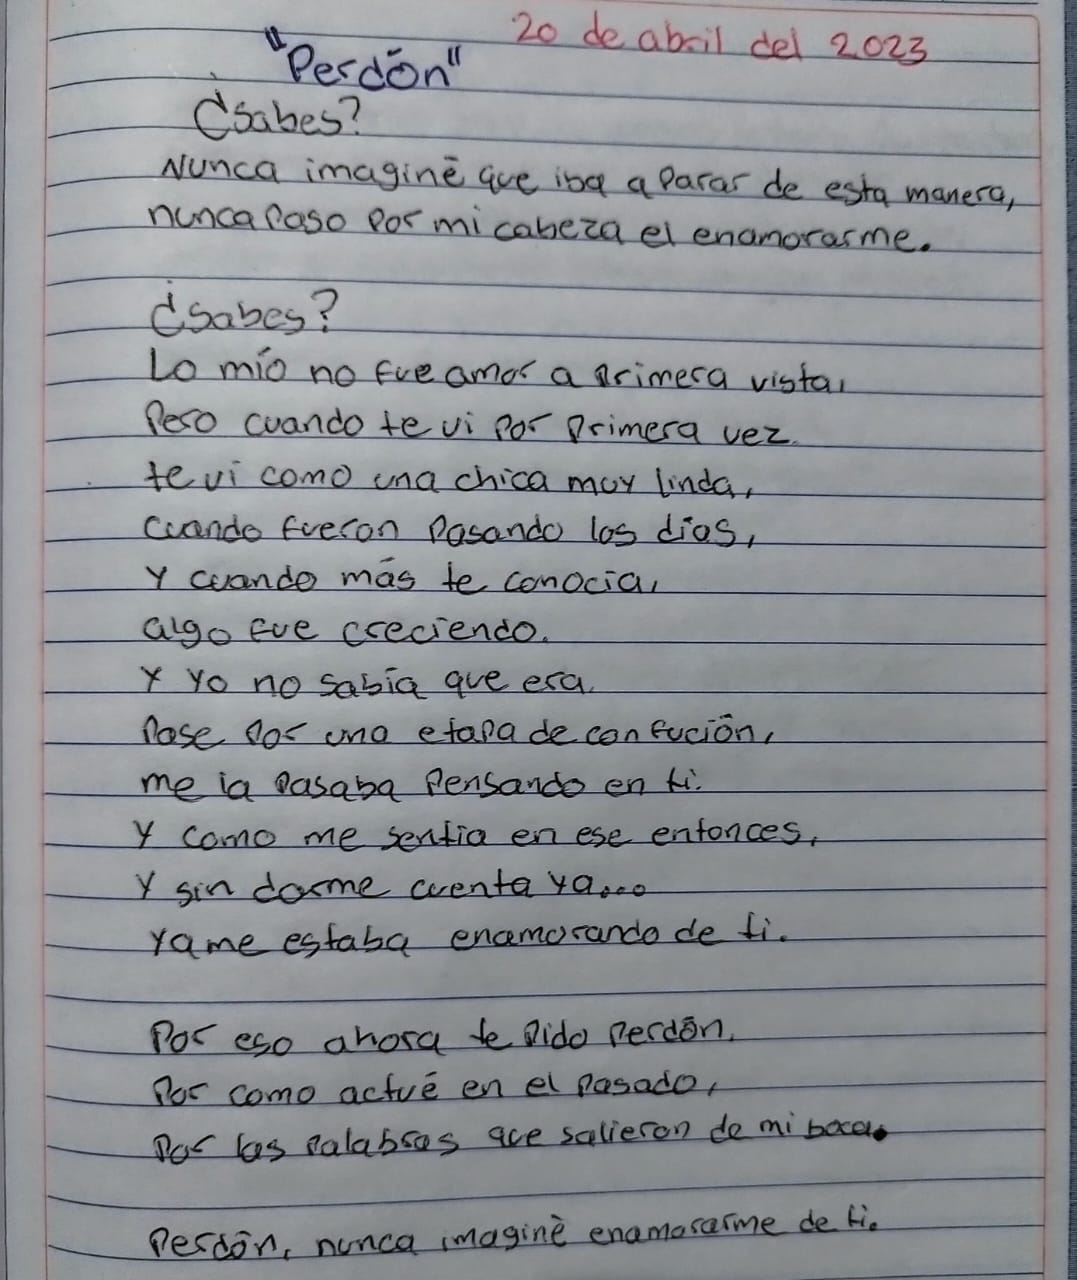 20 de abril del 2023
"Perdón"
¿Sabes?
Nunca imaginé que iba a parar de esta manera,
nunca paso por mi cabeza el enamorarme.
¿Sabes?
Lo mío no fue amor a primera vista,
Pero cuando te vi por primera vez.
te vi como una chica muy linda,
cuando fueron pasando los días,
Y cuando más te conocía,
algo fue creciendo.
Y yo no sabía que era.
Pase por una etapa de confución,
me la pasaba pensando en ti.
Y como me sentia en ese entonces,
Y sin darme cuenta ya...
Ya me estaba enamorando de ti.
Por eso ahora te pido perdón.
Por como actué en el pasado,
Por las palabras que salieron de mi boca.
Perdón, nunca imaginé enamorarme de ti.